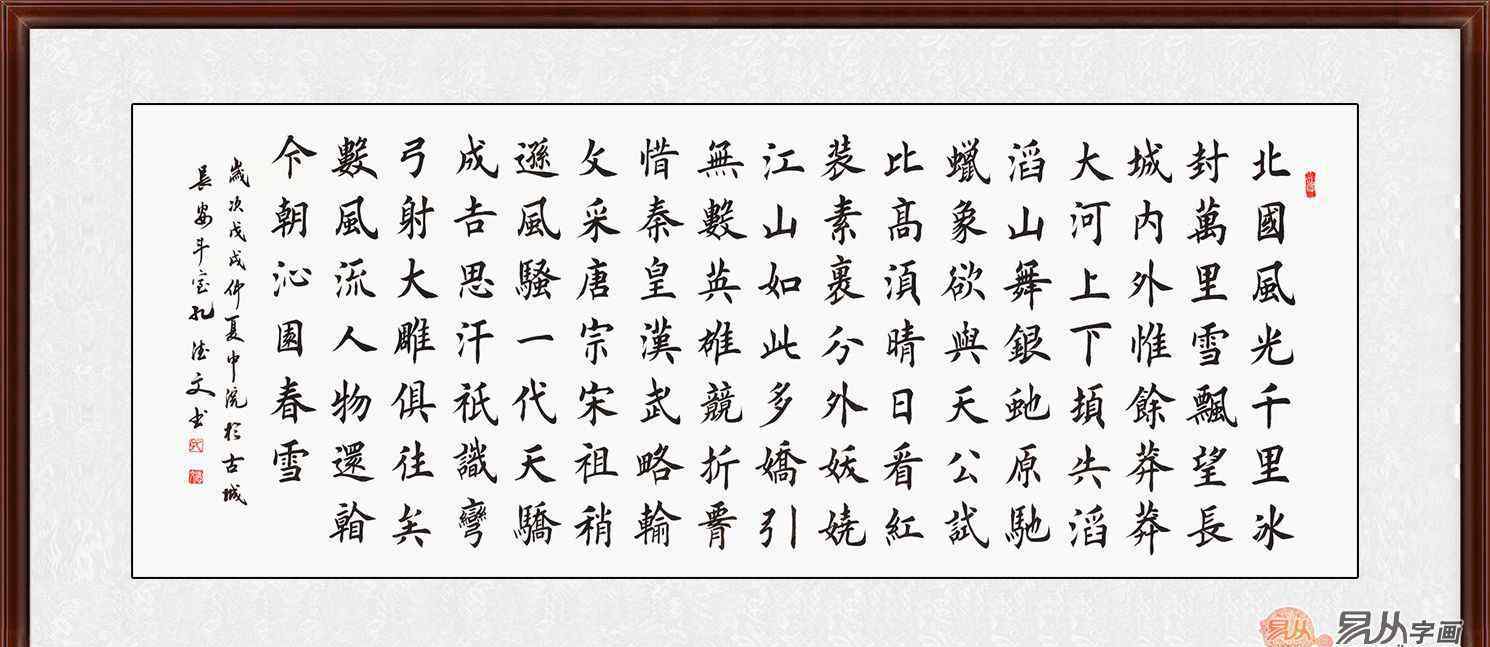 北國風光千里冰
封萬里雪飄望長
城内外惟餘莽莽
大河上下頓失滔
滔山舞銀虵原馳
蠟象欲與天公試
比高須晴日看紅
装素裹分外妖嬈
江山如此多嬌引
無數英雄競折腰
惜秦皇漢武略輸
文采唐宗宋祖稍
遜風騷一代天驕
成吉思汗祇識彎
弓射大雕俱往矣
數風流人物還看
今朝沁園春雪
歲次戊戌仲夏中浣於古城
長安斗室孔德文书
易从
易从字画